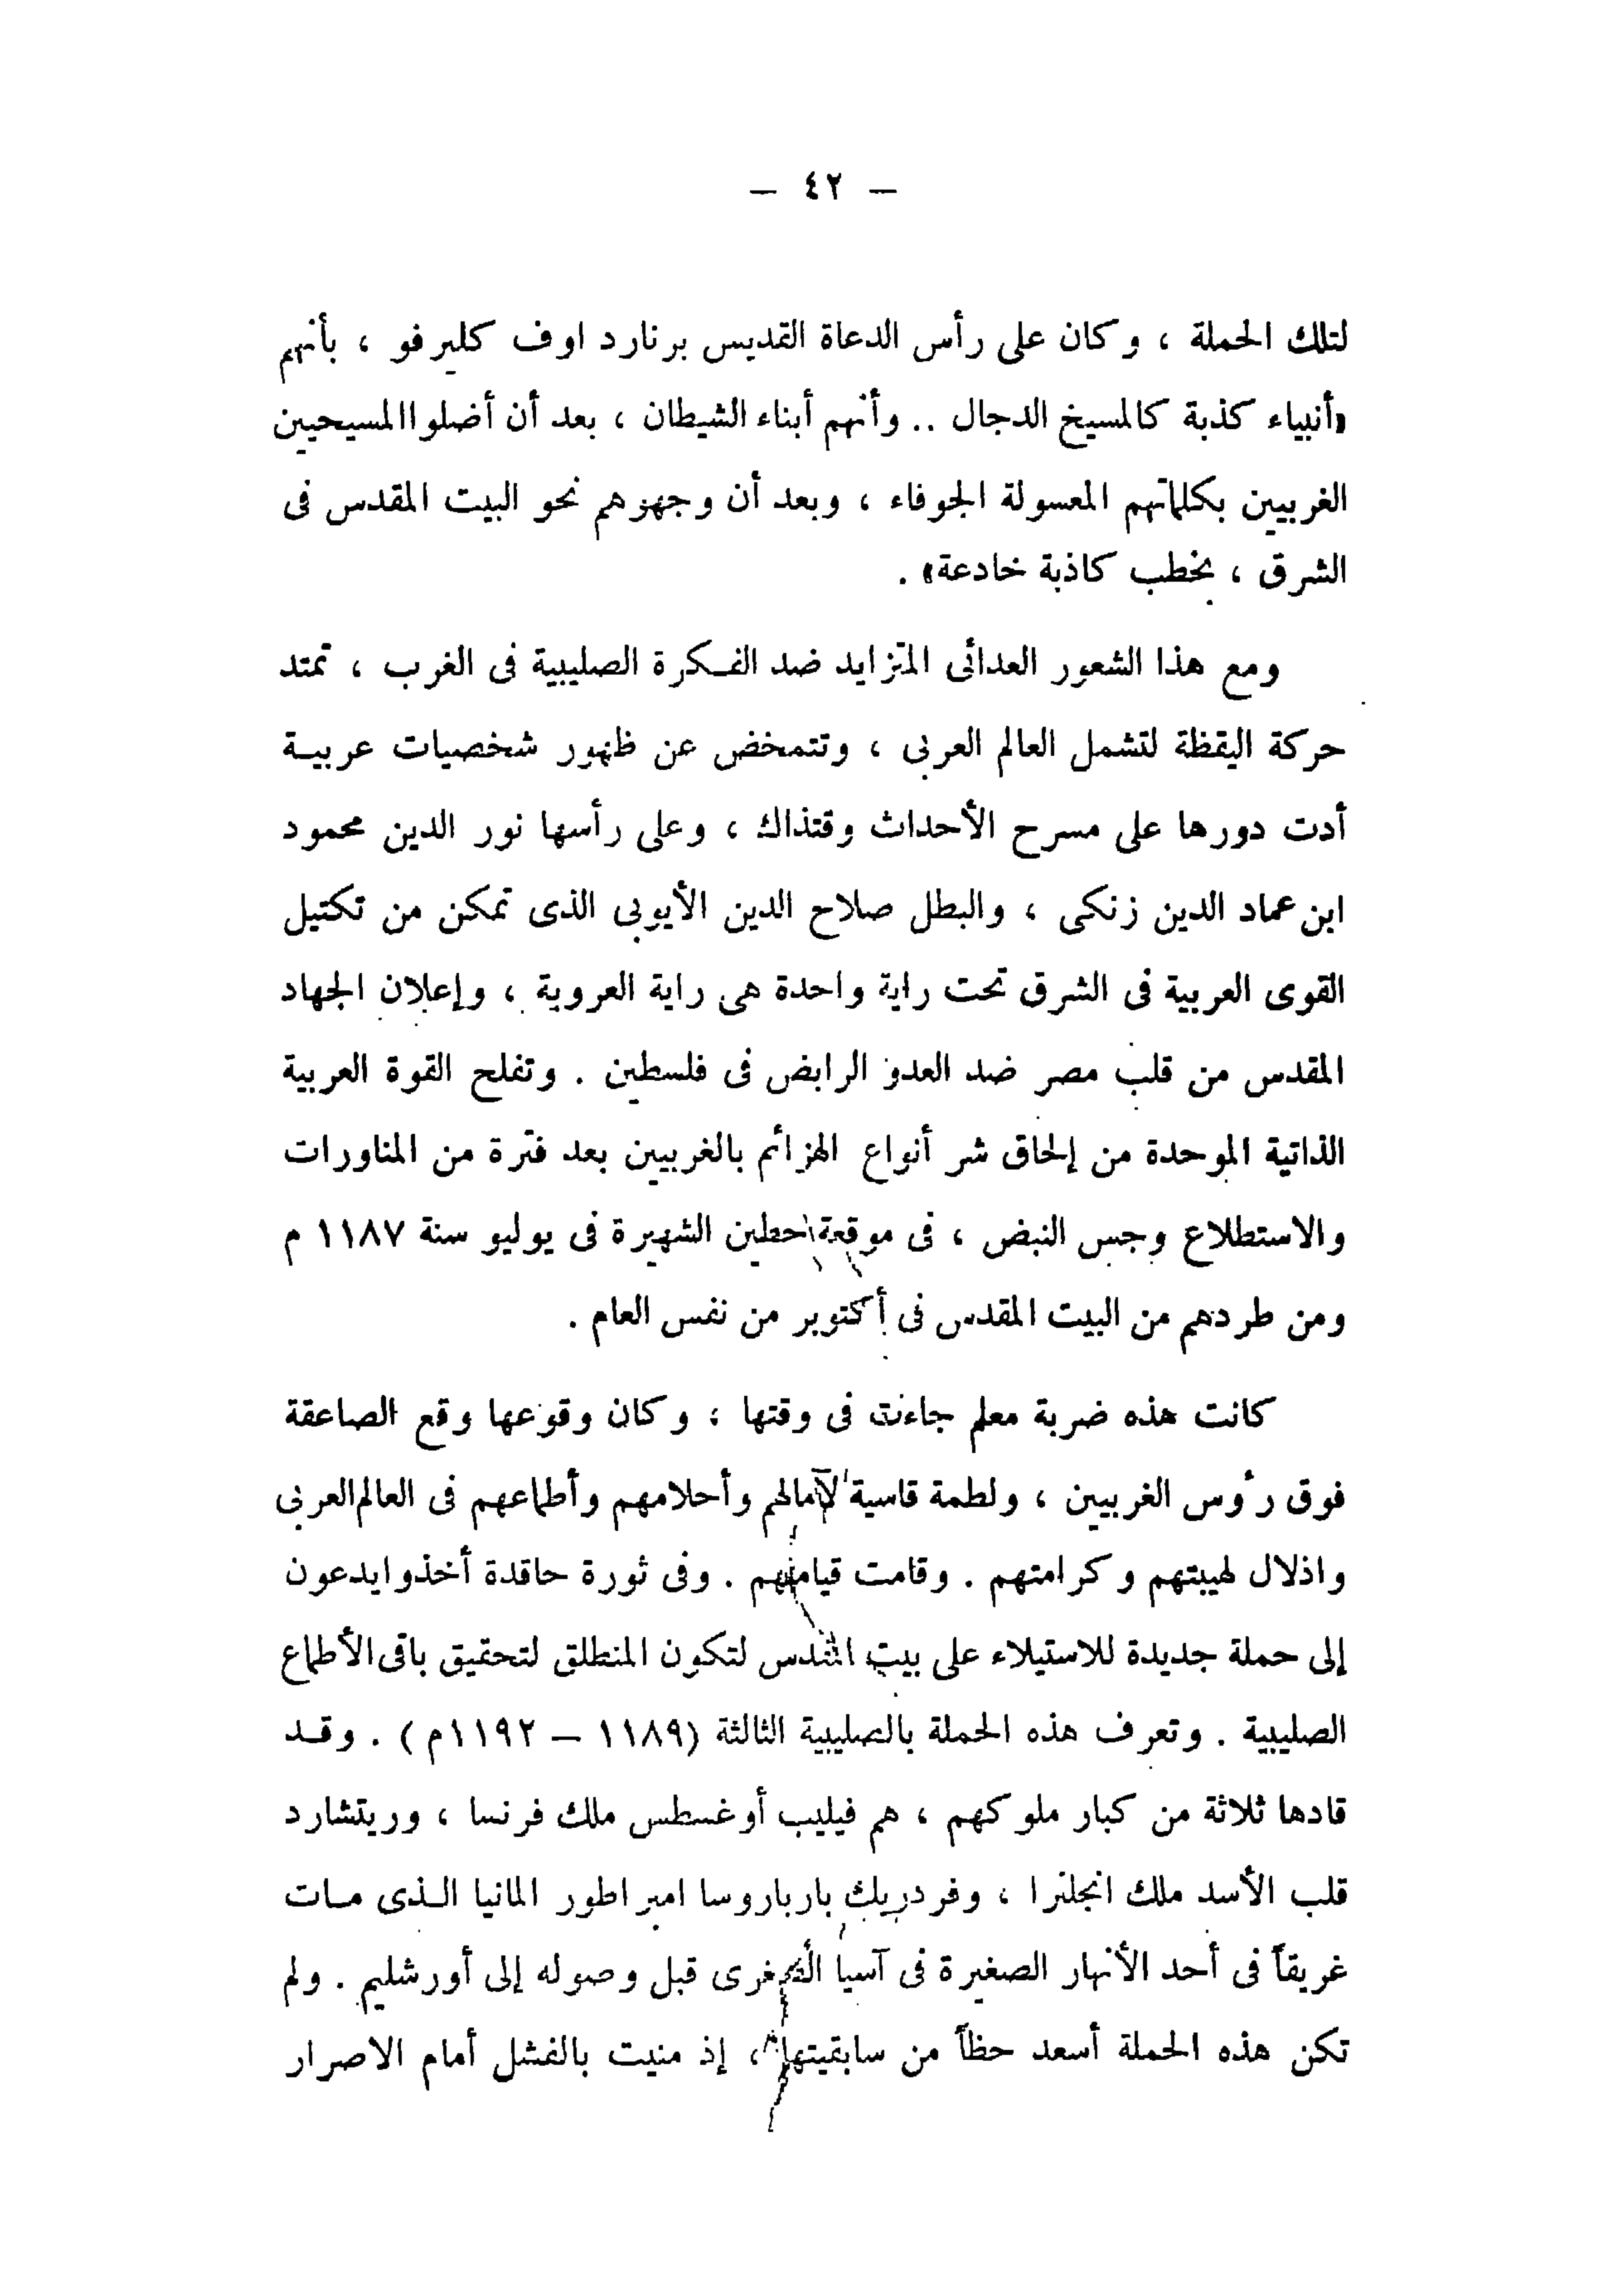 — ٤٢ —
لتلك الحملة ، وكان على رأس الدعاة القديس برنارد اوف كليرفو ، بأنهم
«أنبياء كذبة كالمسيخ الدجال .. وأنهم أبناء الشيطان ، بعد أن أضلوا المسيحيين
الغربيين بكلماتهم المعسولة الجوفاء ، وبعد أن وجهزهم نحو البيت المقدس فى
الشرق ، بخطب كاذبة خادعة» .
ومع هذا الشعور العدائى المتزايد ضد الفكرة الصليبية فى الغرب ، تمتد
حركة اليقظة لتشمل العالم العربى ، وتتمخض عن ظهور شخصيات عربية
أدت دورها على مسرح الأحداث وقتذاك ، وعلى رأسها نور الدين محمود
ابن عماد الدين زنكى ، والبطل صلاح الدين الأيوبى الذى تمكن من تكتيل
القوى العربية فى الشرق تحت راية واحدة هى راية العروبة ، وإعلان الجهاد
المقدس من قلب مصر ضد العدو الرابض فى فلسطين . وتفلح القوة العربية
الذاتية الموحدة من إلحاق شر أنواع الهزائم بالغربيين بعد فترة من المناورات
والاستطلاع وجس النبض ، فى موقعة حطين الشهيرة فى يوليو سنة ١١٨٧ م
ومن طردهم من البيت المقدس فى أكتوبر من نفس العام .
كانت هذه ضربة معلم جاءت فى وقتها ؛ وكان وقوعها وقع الصاعقة
فوق رؤوس الغربيين ، ولطمة قاسية لآمالهم وأحلامهم وأطماعهم فى العالم العربى
واذلال لهيبتهم وكرامتهم . وقامت قيامتهم . وفى ثورة حاقدة أخذوا يدعون
إلى حملة جديدة للاستيلاء على بيت المقدس لتكون المنطلق لتحقيق باقى الأطماع
الصليبية . وتعرف هذه الحملة بالصليبية الثالثة (١١٨٩ — ١١٩٢م) . وقد
قادها ثلاثة من كبار ملوكهم ، هم فيليب أوغسطس ملك فرنسا ، وريتشارد
قلب الأسد ملك انجلترا ، وفردريك بارباروسا امبراطور المانيا الذى مات
غريقاً فى أحد الأنهار الصغيرة فى آسيا الصغرى قبل وصوله إلى أورشليم . ولم
تكن هذه الحملة أسعد حظاً من سابقيتها ، إذ منيت بالفشل أمام الاصرار